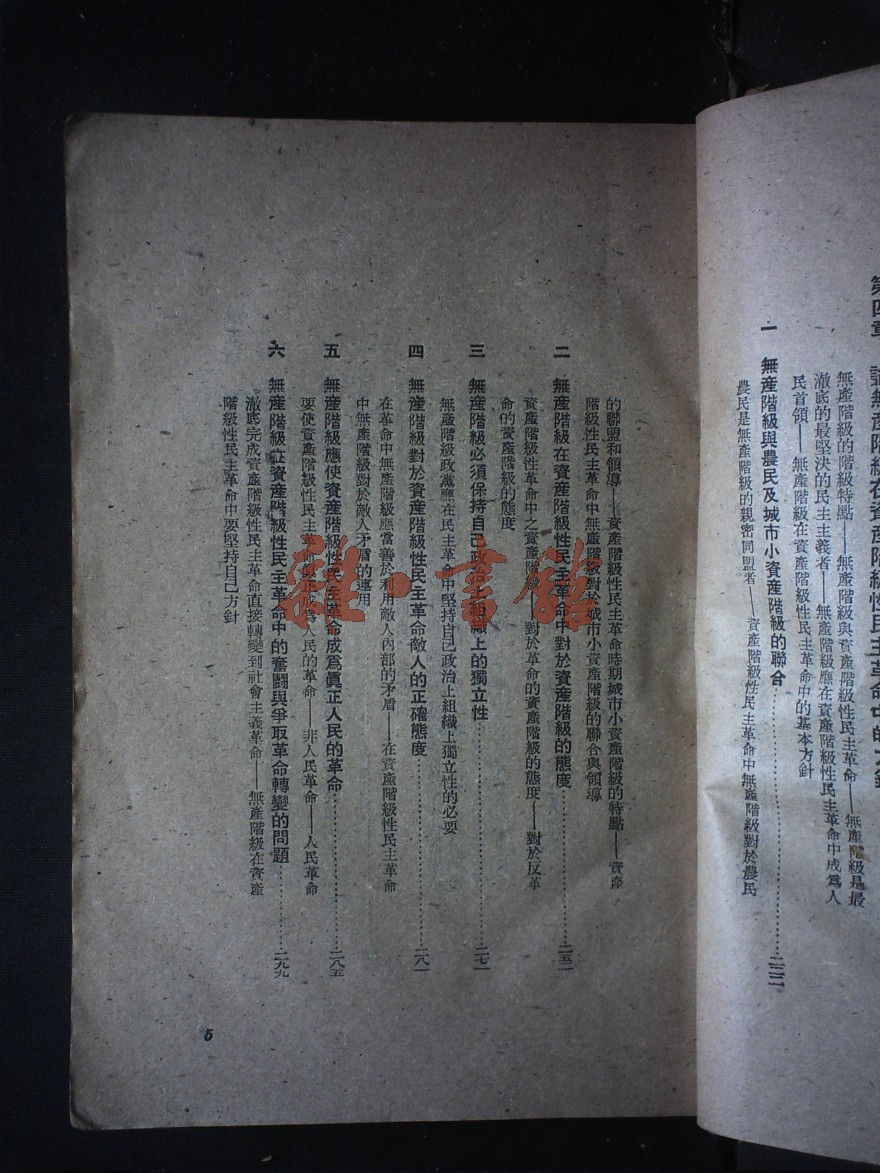 第四章 論無產階級在資產階級性民主革命中的方針
無產階級的階級特點——無產階級與資產階級性民主革命——無產階級是最
澈底的最堅決的民主主義者——無產階級應在資產階級性民主革命中成爲人
民首領——無產階級在資產階級性民主革命中的基本方針
一 無產階級與農民及城市小資產階級的聯合…………二二二
農民是無產階級的親密同盟者——資產階級性民主革命中無產階級對於農民
的聯盟和領導——資產階級性民主革命時期城市小資產階級的特點——資產
階級性民主革命中無產階級對於城市小資產階級的聯合與領導
二 無產階級在資產階級性民主革命中對於資產階級的態度…………二五二
資產階級性革命中之資產階級——對於革命的資產階級的態度——對於反革
命的資產階級的態度
三 無產階級必須保持自己政治上組織上的獨立性…………二七一
無產階級政黨應在民主革命中堅持自己政治上組織上獨立性的必要
四 無產階級對於資產階級性民主革命敵人的正確態度…………二八一
在革命中無產階級應當善於利用敵人內部的矛盾——在資產階級性民主革命
中無產階級對於敵人矛盾的運用
五 無產階級應使資產階級性民主革命成爲眞正人民的革命…………二八五
要使資產階級性民主革命眞正成爲人民的革命——非人民革命——人民革命
六 無產階級在資產階級性民主革命中的奮鬪與爭取革命轉變的問題…………二九九
澈底完成資產階級性民主革命直接轉變到社會主義革命——無產階級在資產
階級性民主革命中要堅持自己方針
5
雜·書館